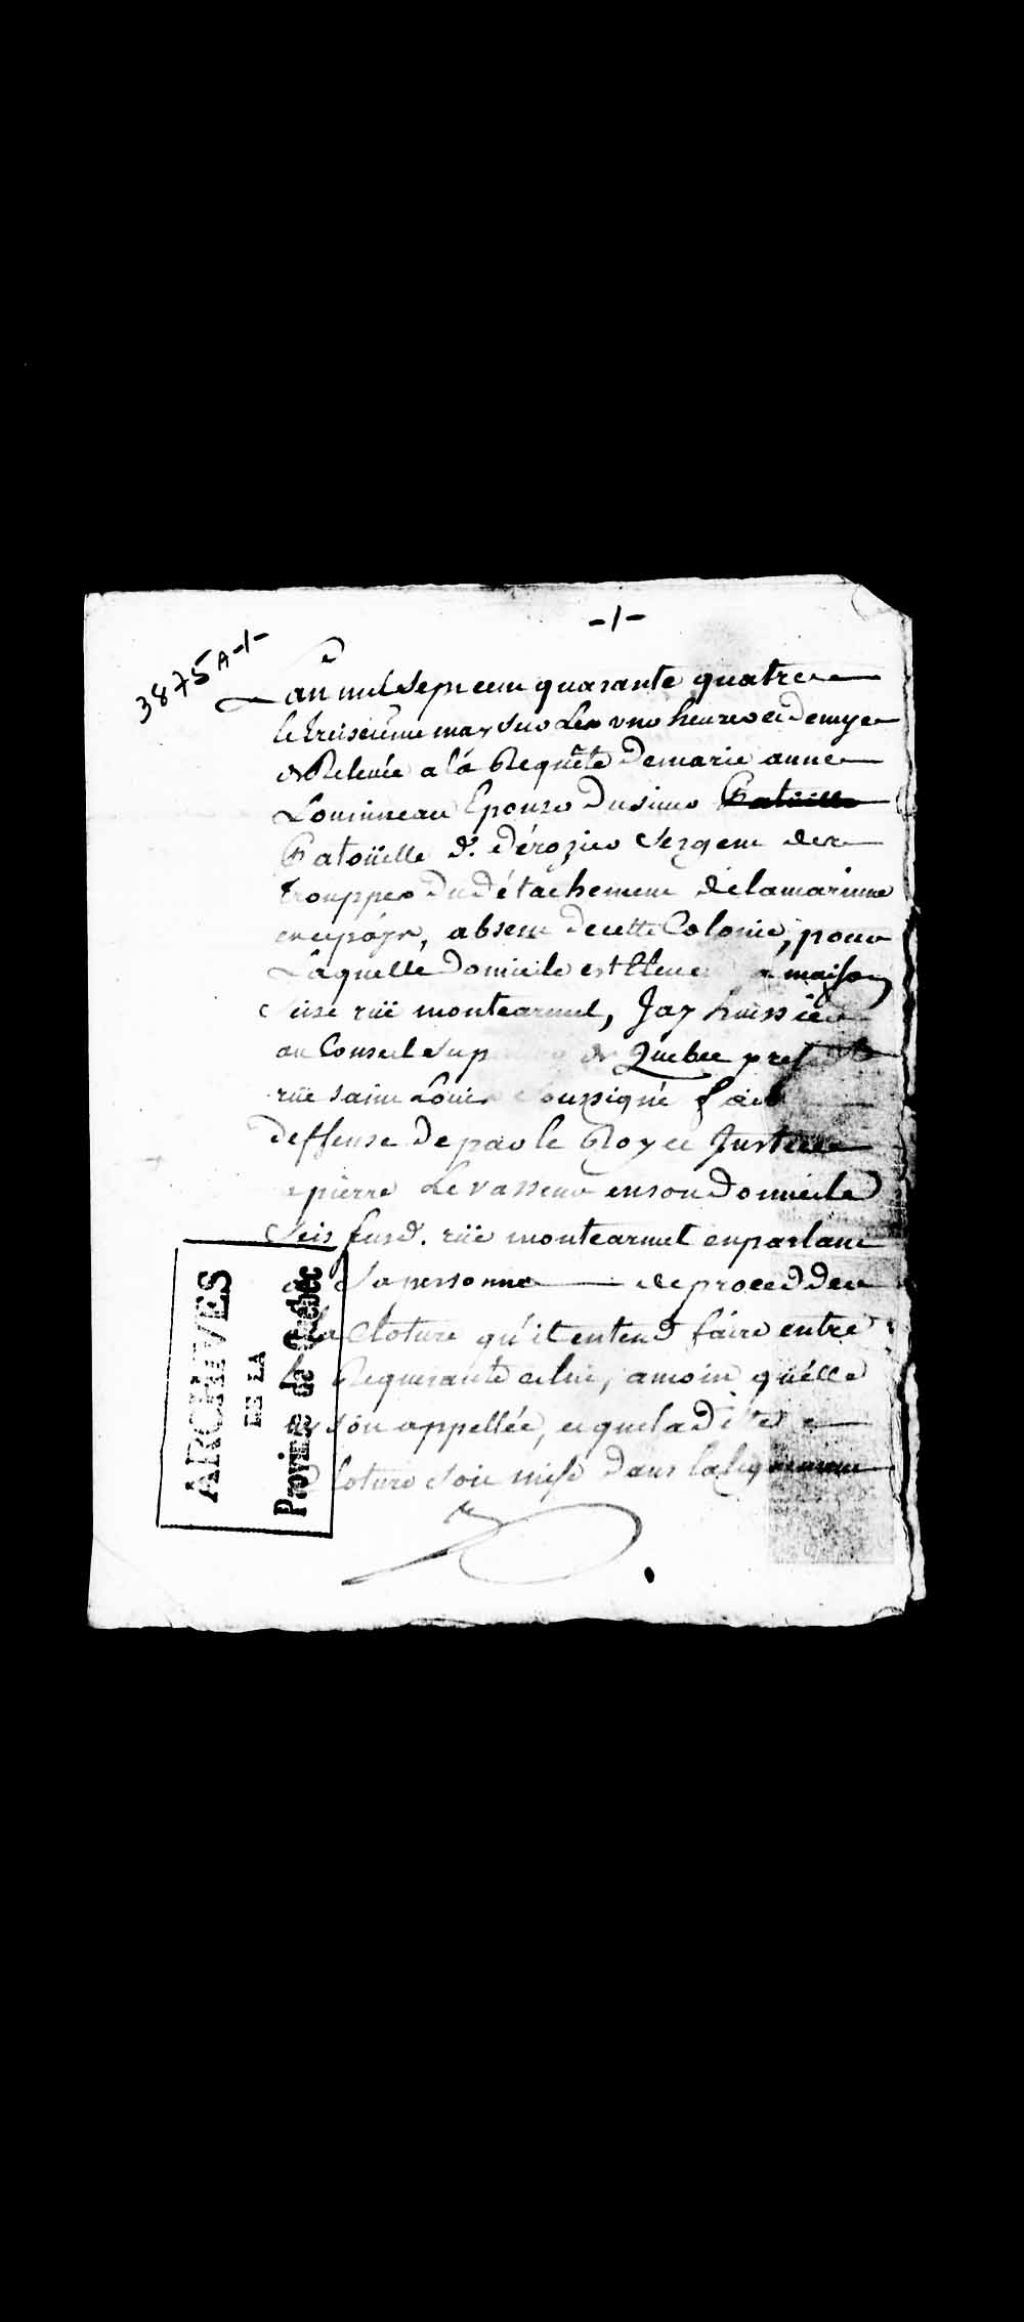 -1-
3875 A-1-
L'an mil sept cent quarante quatre
le treisiéme may sur les une heures et demye
de Relevée a la Requête de marie anne
Louineau Epouse du sieur Batoüelle
Batoüelle d. dérozier sergent des
trouppes du détachement de la marinne
en ce païs, absent de cette Colonie, pour
Laquelle domicile est Eleu maison
size rüe montcarmel, Jay huissier
au Conseil Sup de Quebec
rüe saint Louis soussigné fait
deffense de par le Roy et Justice
a pierre Levasseur en son domicile
seis susd. rüe montcarmel en parlant
a sa personne de procedder
a la Cloture qu'il entend faire entre
la Requerante et lui, a moin qu'elle
ny soit appellée, et que la dite
Cloture soit mise dans
ARCHIVES
DE LA
Province de Québec